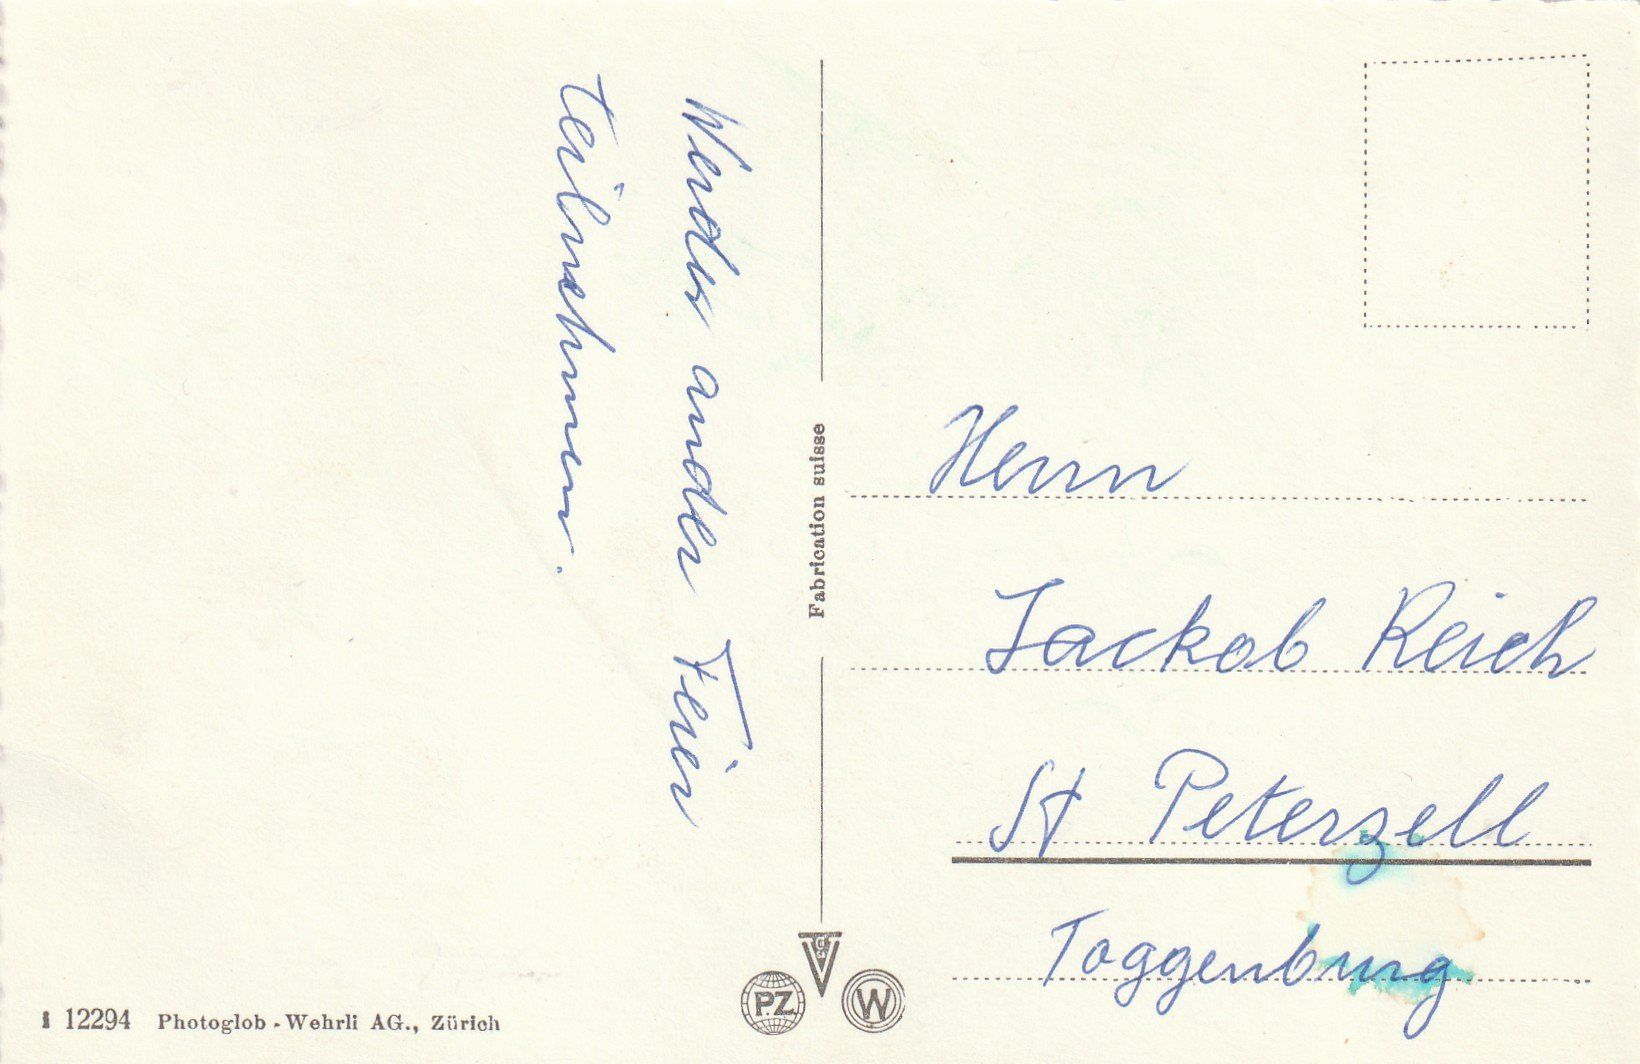 Werden an der Feier
teilnehmen.
Fabrication suisse
Herrn
Jackob Reich
St Peterzell
Toggenburg
12294 Photoglob - Wehrli AG., Zürich
P.Z
W